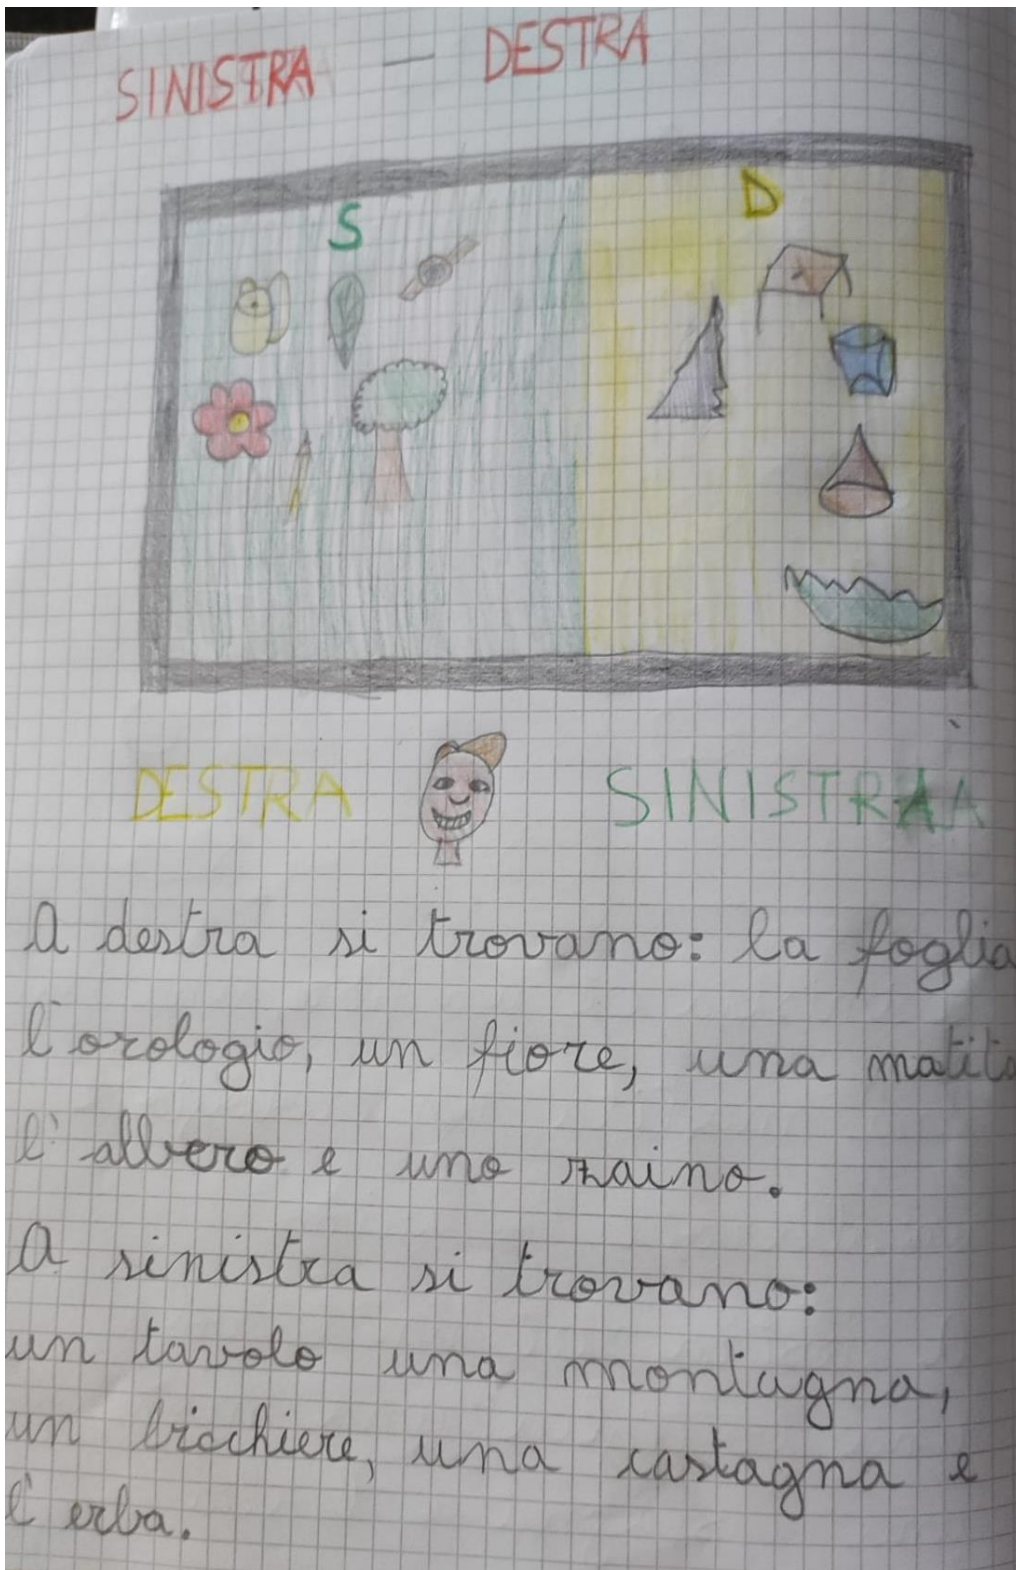 SINISTRA — DESTRA
S D
DESTRA SINISTRAA
A destra si trovano: la foglia
l'orologio, un fiore, una matita
l'albero e uno zaino.
A sinistra si trovano:
un tavolo una montagna,
un bicchiere, una castagna e
l'erba.